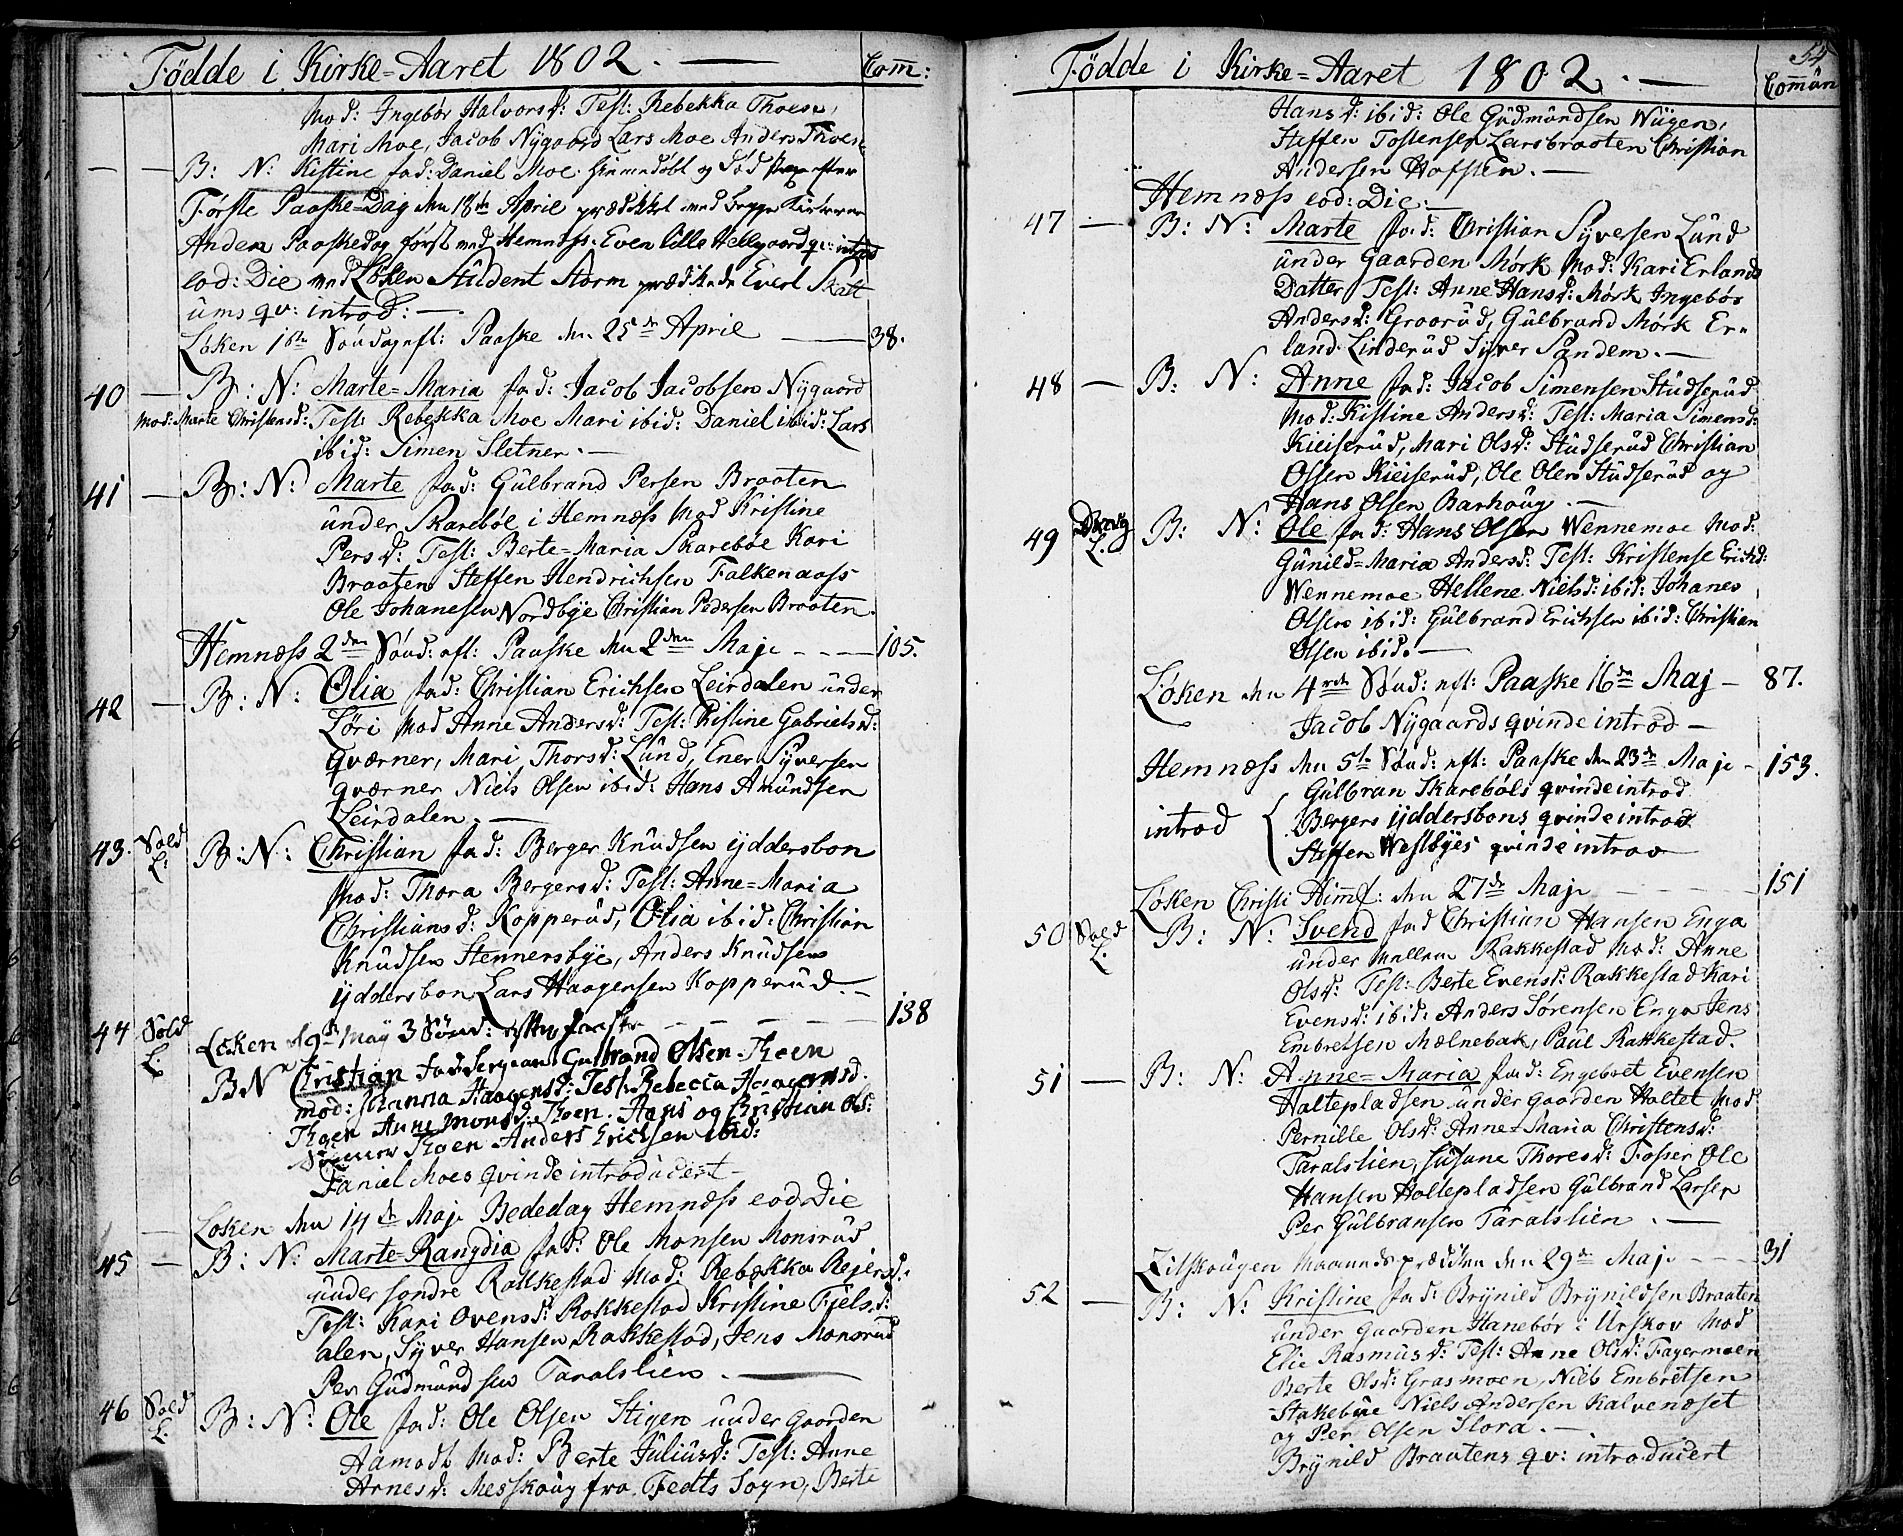 Födde i Kirke=Aaret 1802. — Com̄:
Mod: Ingebør Halvorsd: Test: Rebekka Thoen,
Mari Moe, Jacob Nÿgaard Lars Moe Anders Thoen
B: N: Kistine fad: Daniel Moe hiemedøbt og død
Forste Paaske=Dag den 18de April prædiket med begge Kirkerne
Anden Paaskedag først med Hemness. Even lille Hellgaard qv: introd
eod: Die med Løken Student Storm prædikede Evert Skatt
ums qv: introd: —
Løken 1ste Søndag eft: Paaske den 25de April — 38.
40 — B: N: Marte=Maria fad: Jacob Jacobsen Nÿgaard
Mod: Marte Christensd: Test: Rebekka Moe Mari ibid: Daniel ibid: Lars
ibid: Simen Sletner. —
41 — B: N: Marte fad: Gülbrand Persen Braaten
under Skarebøl i Hemness Mod Kristine
Persd: Test: Berte=Maria Skarebøe Kari
Braaten Steffen Hendrichsen Falkenaass
Ole Johanesen Nordbÿe Christian Pedersen Braaten.
Hemness 2den Sønd: eft: Paaske den 2den Maje - - - 105.
42 — B: N: Olia fad: Christian Erichsen Leirdalen under
Løri Mod Anne Andersd: Test: Kistine Gabrielsd:
qværner, Mari, Thorsd: Lünd, Ener Sÿversen
qværner Niels Olsen ibid: Hans Amündsen
Leirdalen. —
43. Sold L: B: N: Christian fad: Berger Knüdsen ÿddersbon
Mod: Thora Bergersd: Test: Anne=Maria
Christiansd: Kopperüd, Olia ibid: Christian
Knüdsen Stennersbÿe, Anders Knüdsen
ÿddersbon, Lars Haagensen Kopperüd. —
44 Sold L: Løken d 9de Maÿ 3 Sønd: efter Paaske — 138
B: N: Christian fad: Sergeant Gulbrand Olsen Thoen
mod: Johanna Haagensd: Test: Rebecca Haagensd:
Thoen Anne Monsd: Thoen. Hans og Christian Ols:
Thoen Anders Erichsen ibid:
Daniel Moes qvinde introdücert —
Løken den 14de Maje Bededag Hemness eod: Die
45 — B: N: Marte=Rangdia fad: Ole Monsen Monsrüd
under søndre Rakkestad Mod: Rebekka Rejersd:
Test: Kari Ovensd: Rakkestad Kristine Fjels
alen, Sÿver Hansen Rakkestad, Jens Monsrüd
Per Güdmündsen Taralslien. —
46 Sold L: B: N: Ole fad: Ole Olsen Stigen under Gaarden
Aamodt Mod: Berte Jüliusd: Test: Anne
Arnesd: Messkoüg fra Fedts Sogn, Berte
54
Födde i Kirke=Aaret 1802. — Com̄ün
Hansd: ibid: Ole Güdmündsen Wügen,
Steffen Tostensen Larsbraaten Christian
Andersen Hofsten. —
Hemness eod: Die: —
47 — B: N: Marte fad: Christian Sÿversen Lünd
under Gaarden Mørk Mod: Kari Erlands
Datter Test: Anne Hansd: Mørk Ingebør
Andersd: Groorüd, Gülbrand Mørk Er=
land Linderüd Sÿver Sandem. —
48 — B: N: Anne fad: Jacob Simensen Stüdserüd
Mod: Kistine Andersd: Test: Maria Simensd:
Kieiserüd, Mari Olsd: Stüdserüd Christian
Olsen Kieiserüd, Ole Olsen Stüdserüd og
Hans Olsen Barhoüg —
49 L: B: N: Ole fad: Hans Olsen Wennemoe Mod:
Günild=Maria Andersd: Test: Kristense Erichd:
Wennemoe Hellene Nielsd: ibid: Johanes
Olsen ibid: Gülbrand Erichsen ibid: Christian
Olsen ibid. —
Løken den 4rde Sønd: eft: Paaske 16de Maj — 87.
Jacob Nÿgaards qvinde introd —
Hemness den 5te Sønd: eft: Paaske den 23de Maje - 153.
Gülbran Skarebøls qvinde introd
introd { Bergers ÿddersbons qvinde introd
Steffen Westbÿes qvinde introd
Løken Christi Himf: den 27de Maje - - - - 151
50 Sold L. B: N: Svend fad Christian Hansen Enga
under mellem Rakkestad Mod: Anne
Olsd: Test: Berte Evensd: Rakkestad Kari
Evensd: ibid: Anders Sørensen Enga Jens
Embretsen Mælnebak, Paul Rakkestad.
51 — B: N: Anne=Maria fad: Engebret Evensen
Holtepladsen under Gaarden Holtet Mod:
Pernille Olsd: Anne=Maria Christensd:
Taralslien, Süsane Thoresd: Fosser Ole
Hansen Holtepladsen Gülbrand Larsen
Per Gülbransen Taralslien. —
Zilskoügen Maaneds prædiken den 29de Maje - - 31
52 — B: N: Kristine fad: Brÿnild Brÿnildsen Braaten
under Gaarden Hanebør i Urskov Mod
Elie Rasmusd: Test: Anne Olsd: Fagermoen
Berte Olsd: Grasmoen, Niels Embretsen
Stakebÿe Niels Andersen Kalvenæset
og Per Olsen Slora. —
Brÿnild Braatens qv: introdücert